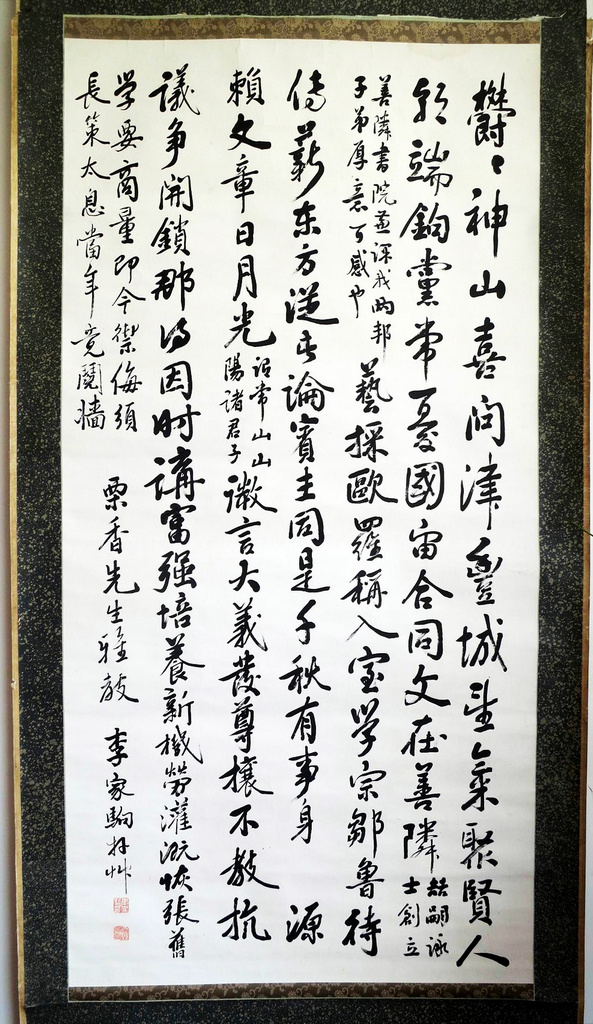 欝〻神山喜问津豊城望氣聚賢人
端鉤黨常憂國宙合同文在善隣
嗣詠
士創立
善隣書院並課我两邦
子弟厚意可感也
藝採歐羅稱入室学宗鄒魯待
傳薪东方從古論賓主同是千秋有事身 源
賴文章日月光
常山山
陽諸君子
微言大義發尊攘不教抗
議争開鎖那得因时講富强培養新機勞灌溉恢張舊
学要商量即今禦侮須
長策太息當年竞鬩墙
栗香先生雅教 李家駒拜艸